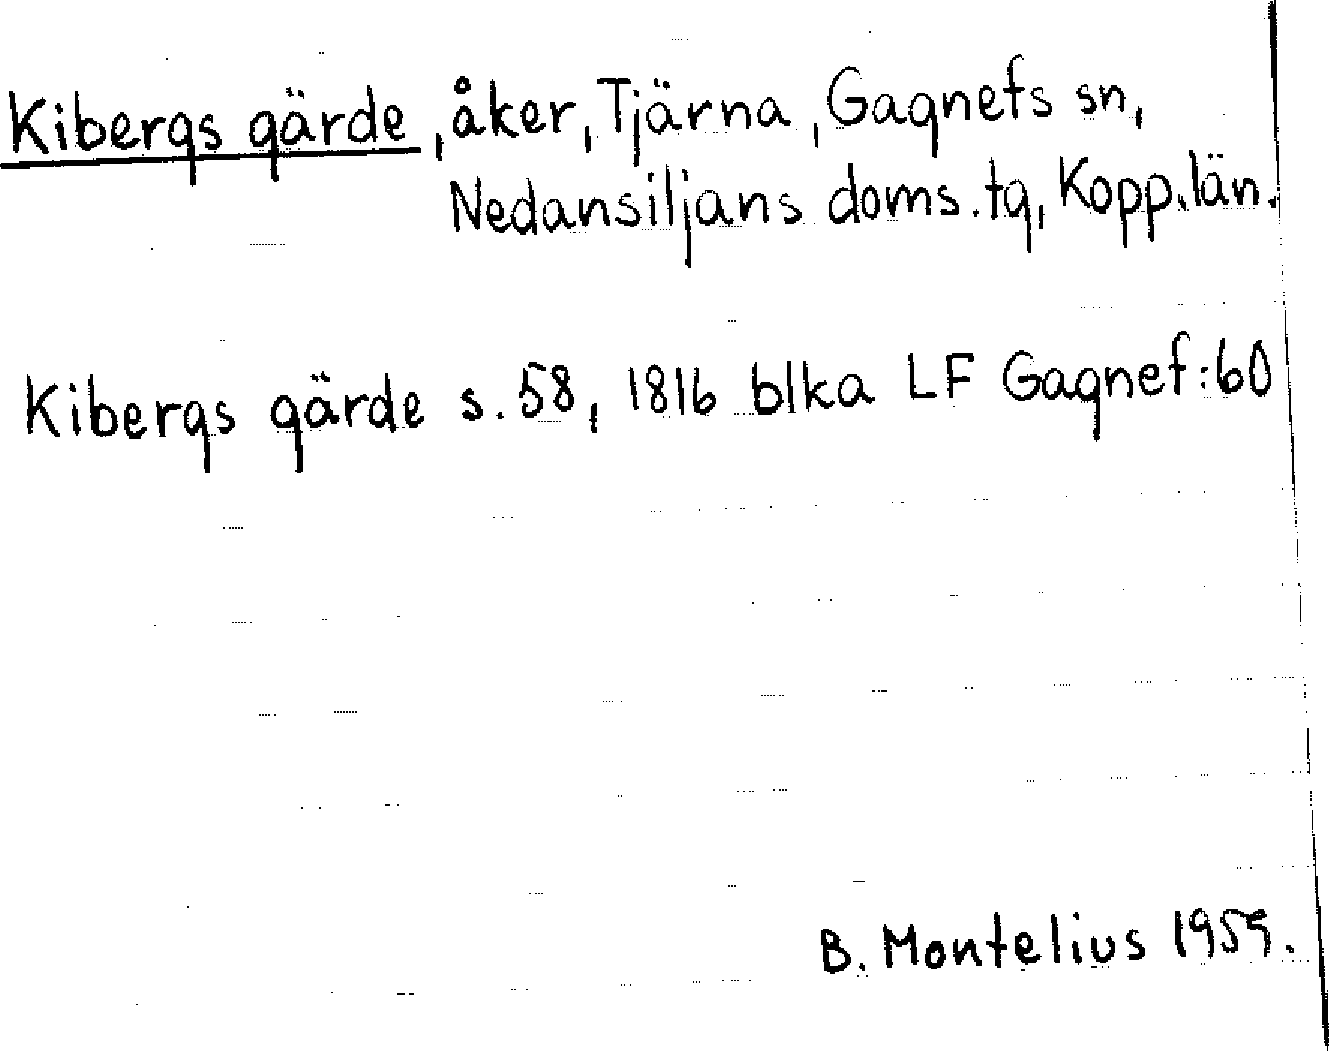 Kibergs gärde, åker, Tjärna, Gagnefs sn,
Nedansiljans doms.tg, Kopp.län.
Kibergs gärde s.58, 1816 blka LF Gagnef:60
B. Montelius 1959.